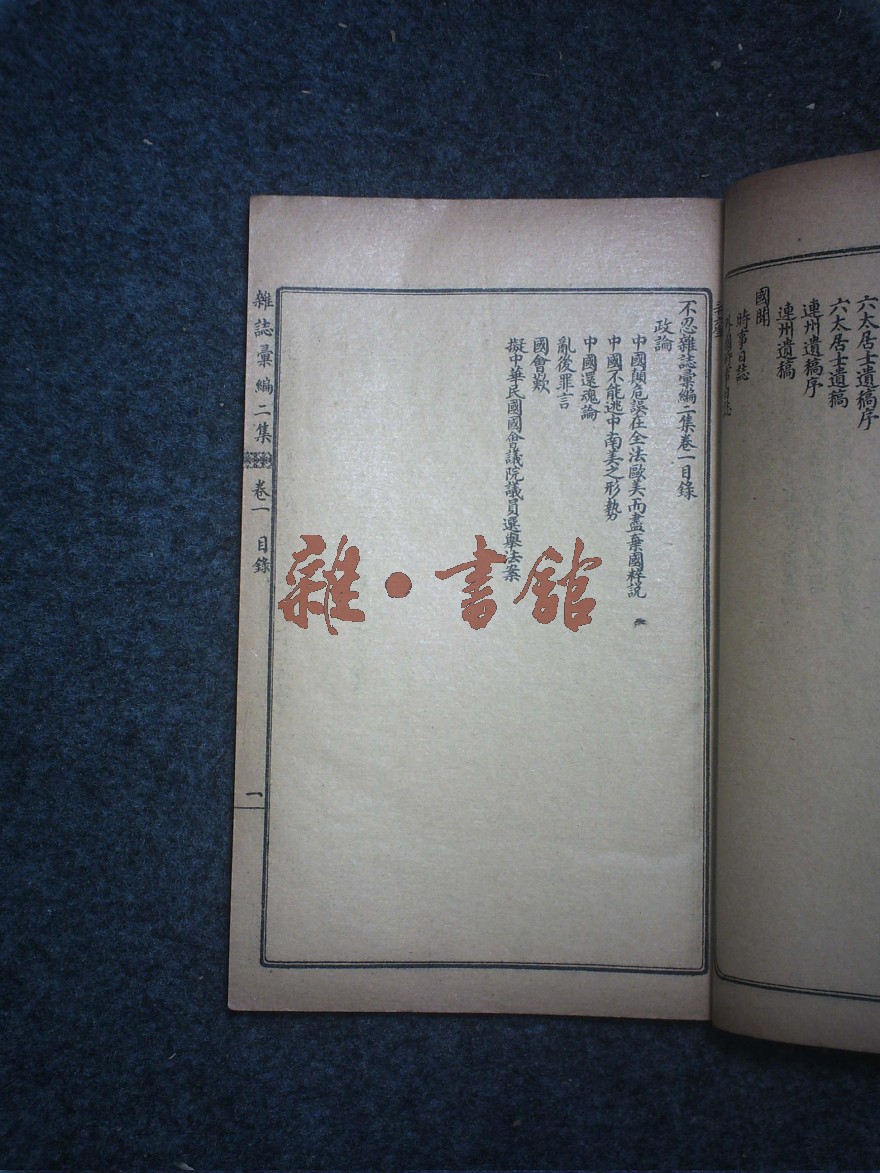 六太居士遺稿序
六太居士遺稿
連州遺稿序
連州遺稿
國聞
時事日誌
不忍雜誌彙編二集卷一目錄
政論
中國顛危誤在全法歐美而盡棄國粹説
中國不能逃中南美之形勢
中國還魂論
亂後罪言
國會歎
擬中華民國國會議院議員選舉法案
雜誌彙編二集
卷一
目錄
一
雜·書館